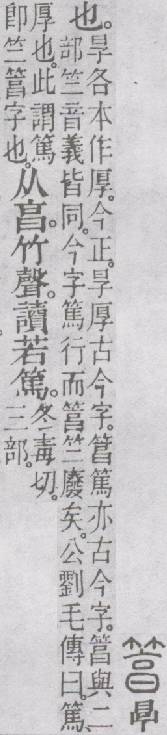 䈞㫗
也。㫗各本作厚。今正。㫗厚古今字。䈞篤亦古今字。䈞與二
部竺音義皆同。今字篤行而䈞竺廢矣。公劉毛傳曰。篤、
厚也。此謂篤
卽竺䈞字也。
从亯。竹聲。讀若篤。
冬毒切。
三部。